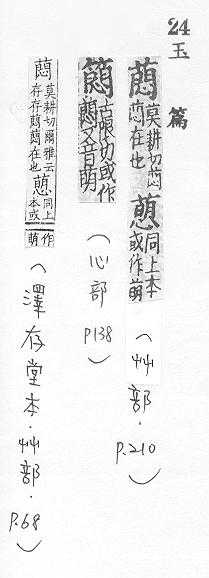 24
玉
篇
莫耕切
在也
同上本
或作萌
(艸部.p.210)
古眼切或作
又音萌
(心部p138)
莫耕切爾雅云
存存
在也
同上
本或
作
萌
(澤存堂本.艸部.p.68)